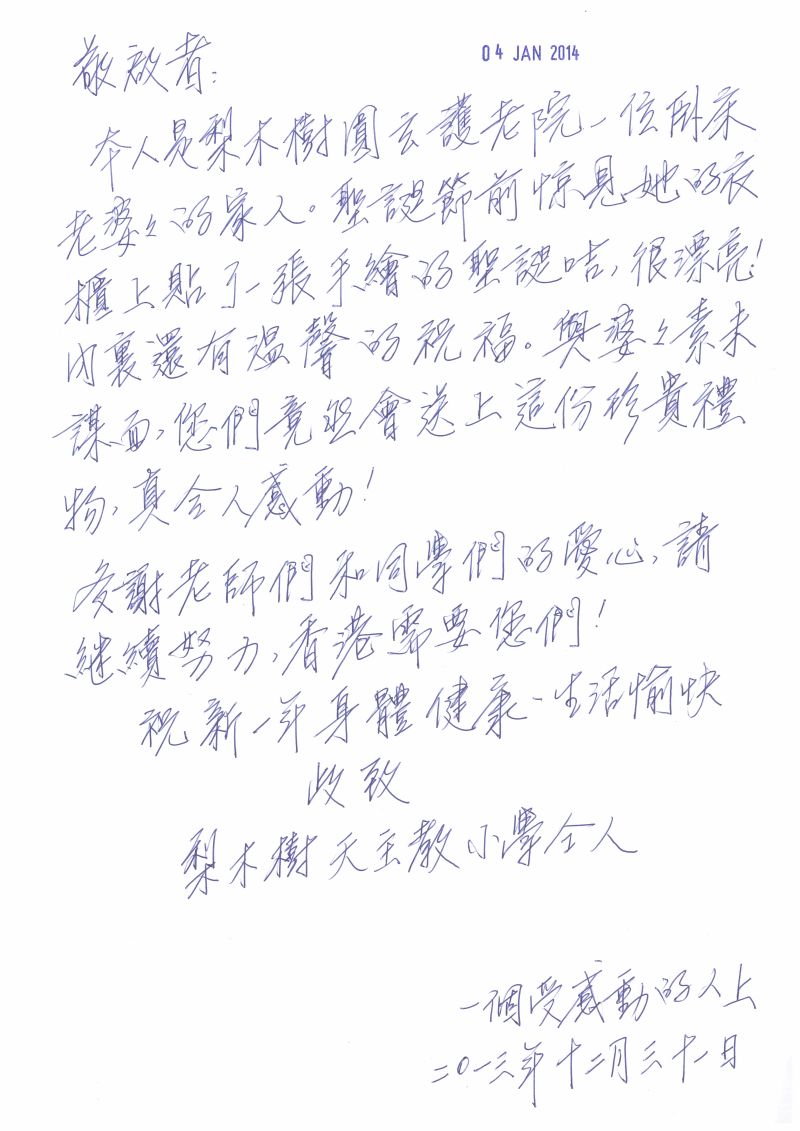 敬啟者： 04 JAN 2014
本人是梨木樹圓玄護老院一位卧床
老婆々的家人。聖誕節前惊見她的衣
櫃上貼了一張手繪的聖誕咭,很漂亮!
內裏還有溫馨的祝福。與婆々素未
謀面,您們竟然會送上這份珍貴禮
物,真令人感動!
多謝老師們和同學們的愛心,請
継續努力,香港需要您們!
祝新一年身體健康、生活愉快
此致
梨木樹天主教小學仝人
一個受感動的人上
二○一三年十二月三十一日